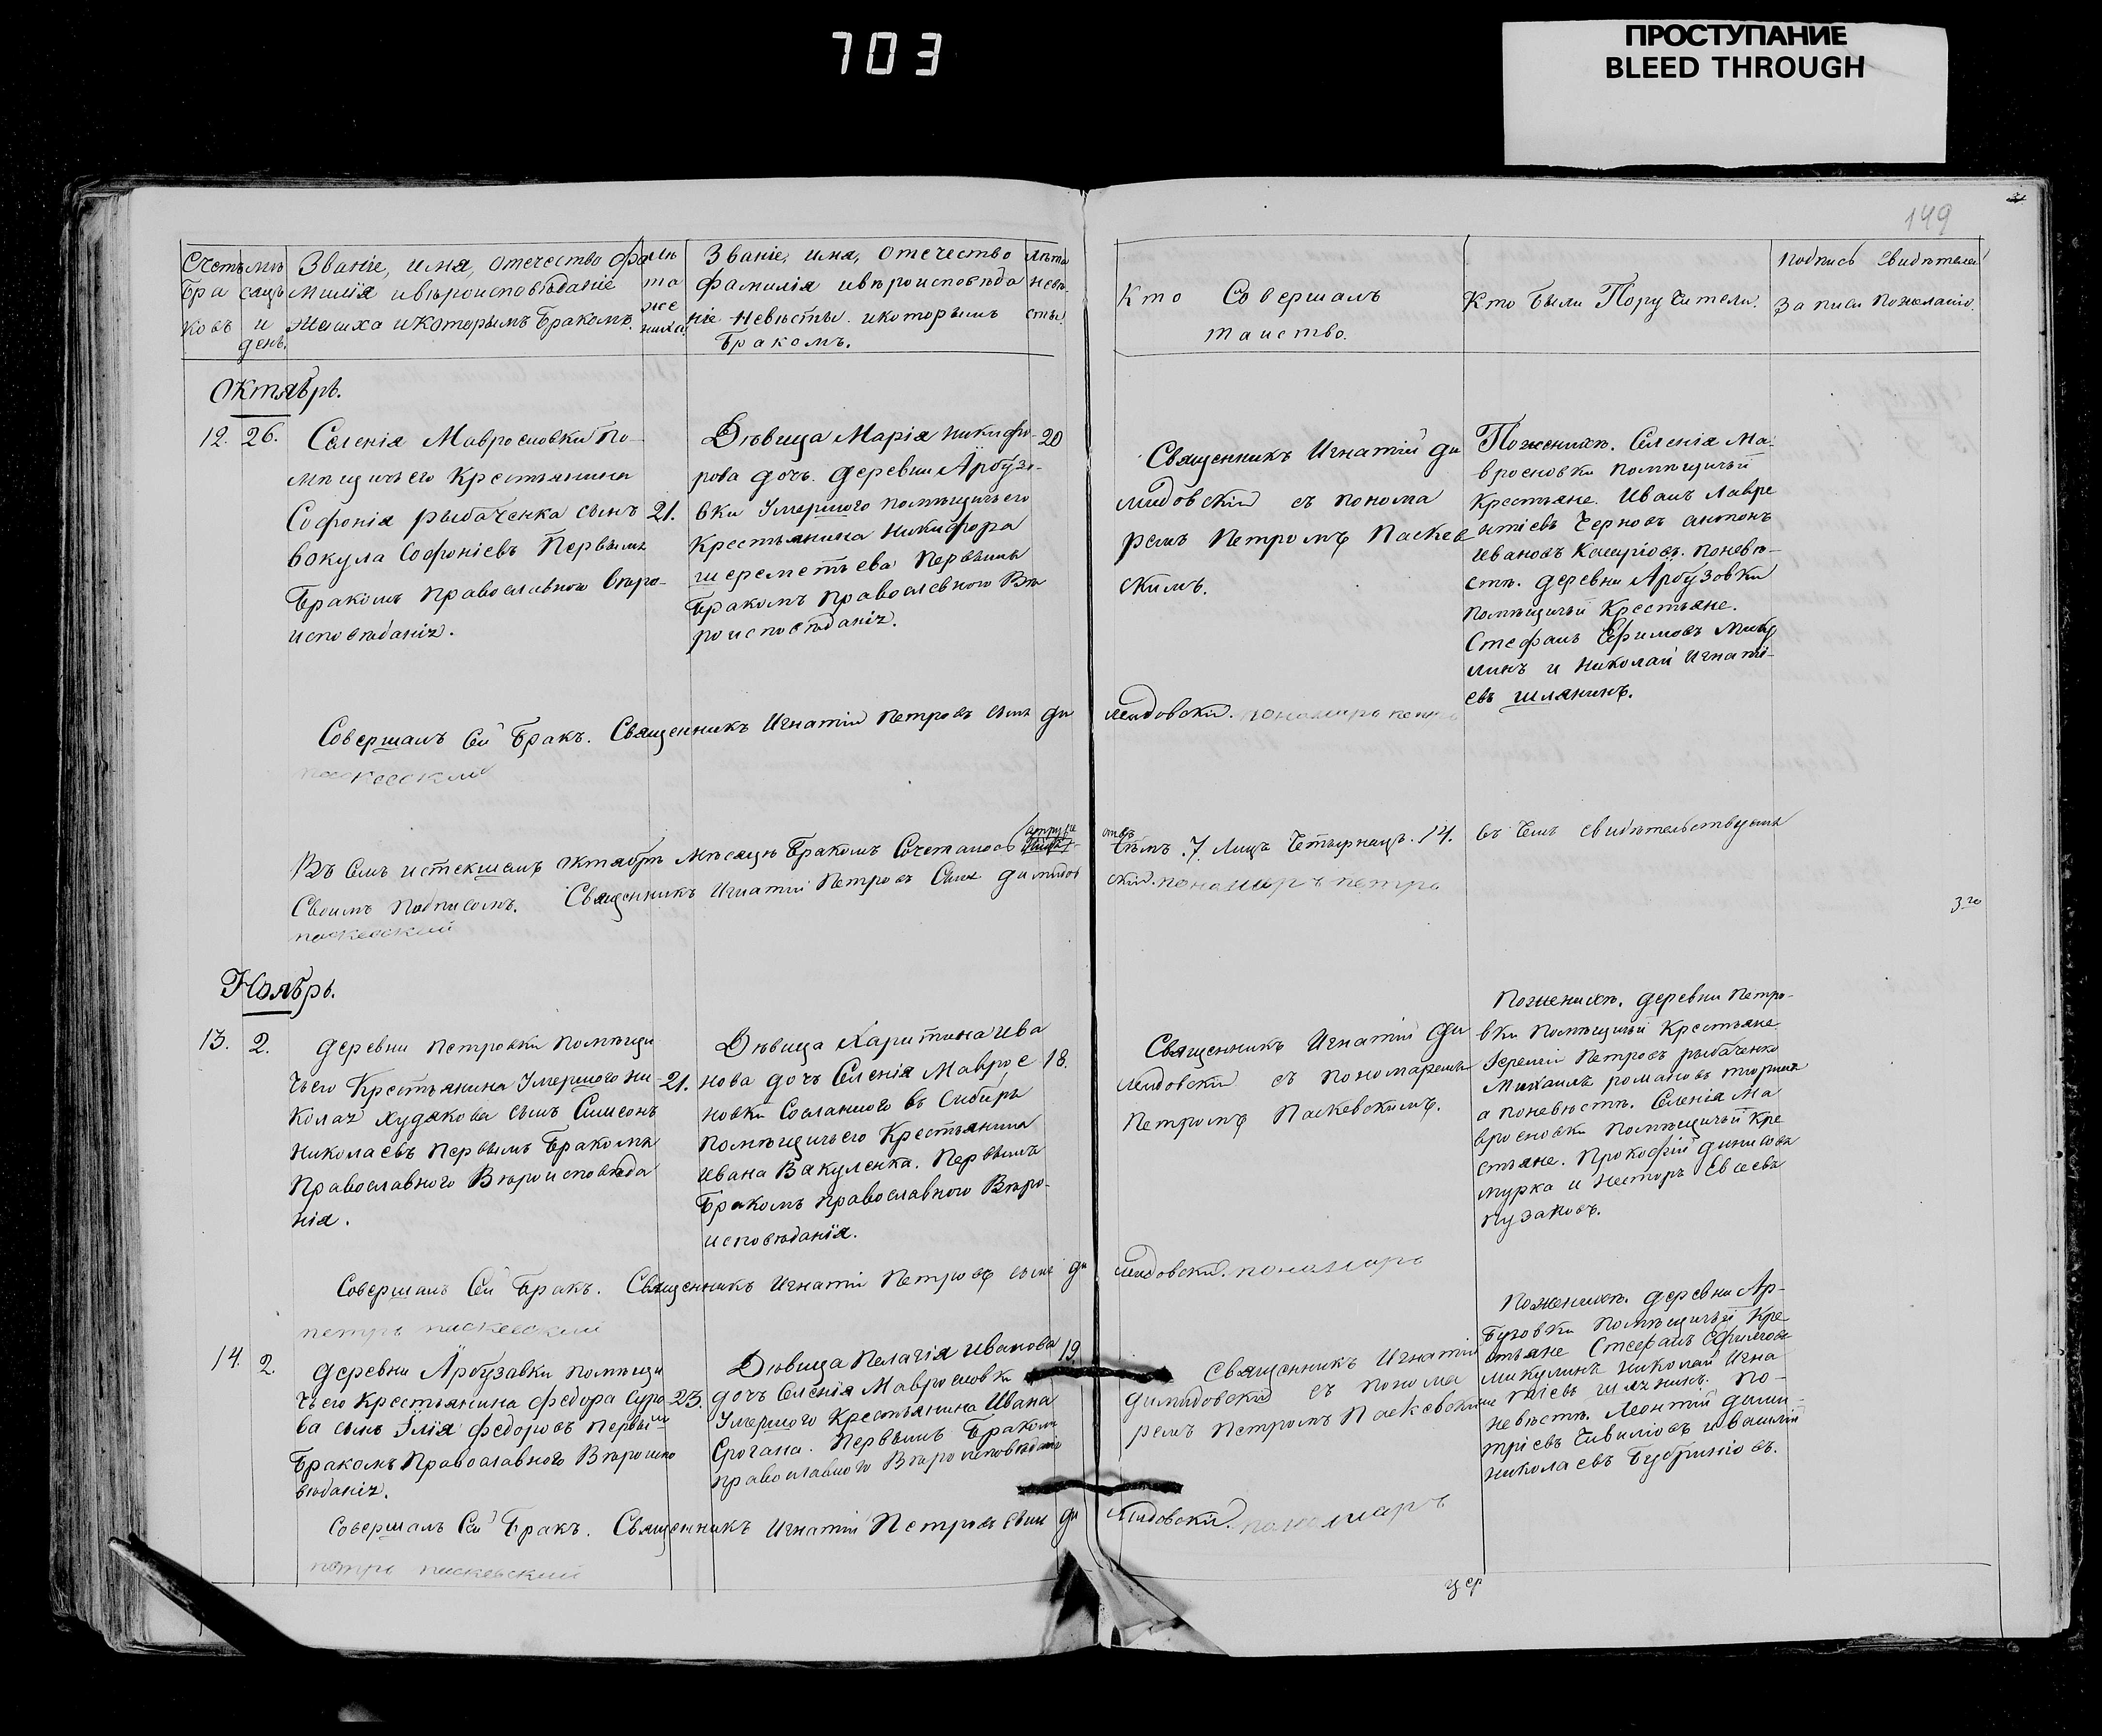 703
ПРОСТУПАНИЕ
BLEED THROUGH
149
Счетъ
бра
ковъ
мѣ
сяцъ
и
день.
Званіе, имя, отечество фа
милія ивѣроисповѣданіе
жениха икоторымъ бракомъ.
лѣ
та
же
ниха.
Званіе, имя, отечество
фамилія ивѣроисповѣда
ніе невѣсты. икоторымъ
бракомъ.
лѣта
невѣ
сты.
Кто Совершалъ
таинство.
Кто были Поручители.
подпись свидѣтелей
записи пожеланію.
Октябрь.
12. 26.
Селенія Мавросновки по-
мѣщичьего Крестьянина
Софонія рыбаченка сынъ
Вокула Софоніевъ Первымъ
бракомъ православного вѣро-
исповѣданія.
21.
Дѣвица Марія Никифо-
рова дочь. деревни Арбузо-
вки Умершого помѣщичьего
Крестьянина Никифора
шереметьева Первымъ
бракомъ православного Вѣ
роисповѣданія.
20
Священникъ Игнатій ди
мидовскій съ понома
ремъ Петромъ Паскев
скимъ.
Поженихѣ. Селенія Ма-
вросновки помѣщичьи
крестьяне. Иванъ Лавре
нтіевъ Черновъ антонъ
ивановъ поневѣ-
стѣ. деревни Арбузовки
помѣщичьи Крестьяне.
Стефанъ Ефимовъ Мику
линъ и николай игнаті-
евъ шлянинъ.
Совершалъ Сей бракъ. Священникъ Игнатій Петровъ сынъ ди мидовскій. пономарь петръ
паскевскій
Въ семъ истекшемъ октябрѣ мѣсяцѣ бракомъ Сочеталось .7. Лицъ Четырнадц. 14. въ чемъ свидѣтельствуемъ
Своимъ подписомъ. Священникъ Игнатій Петровъ Сынъ димидов скій. пономарь петръ
паскевскій
3го
Ноябрь.
13. 2.
деревни Петровки помѣщи
чьего Крестьянина Умершого ни
колая худякова сынъ Симеонъ
николаевъ первымъ бракомъ
православного Вѣроисповѣда
нія.
21.
Дѣвица Харитина ива
нова дочь Селенія Маврос
новки Сосланного въ Сибирь
помѣщичьего Крестьянина
ивана Вакуленка. Первымъ
бракомъ православного Вѣро-
исповѣданія.
18.
Священникъ Игнатій ди
мидовскій съ пономаремъ
Петромъ Паскевскимъ.
Поженихѣ. деревни Петро-
вки помѣщичьи Крестьяне
Іеремій Петровъ рыбаченко
Михаилъ романовъ
а поневѣстѣ. Селенія Ма
вросновки помѣщичьи Кре
стьяне. Прокофій динисовъ
мурка и несторъ Евсеевъ
пузаковъ.
Совершалъ Сей бракъ. Священникъ Игнатій Петровъ сынъ ди мидовскій. пономарь
петръ паскевскій
14. 2.
деревни Арбузавки помѣщи
чьего Крестьянина федора Суро
ва сынъ Ілія федоровъ первым
бракомъ Православного Вѣроиспо
вѣданія.
23.
Дѣвица Пелагія иванова
дочь Селенія Мавросновки
Умершого Крестьянина Ивана
Срогана. Первымъ бракомъ
православного Вѣроисповѣданія
19
Священникъ Игнатій
димидовскій съ понома
ремъ Петромъ Паскевскимъ
Поженихѣ. деревни Ар-
бузовки помѣщичьи Кре
стьяне Стефанъ Ефимовъ
микулинъ николай игна
тіевъ шлянинъ. по-
невѣстѣ. Леонтій дими-
тріевъ Чивиліовъ ивасилій
николаевъ
Совершалъ Сей бракъ. Священникъ Игнатій Петровъ сынъ ди мидовскій. пономарь
петръ паскевскій
цер